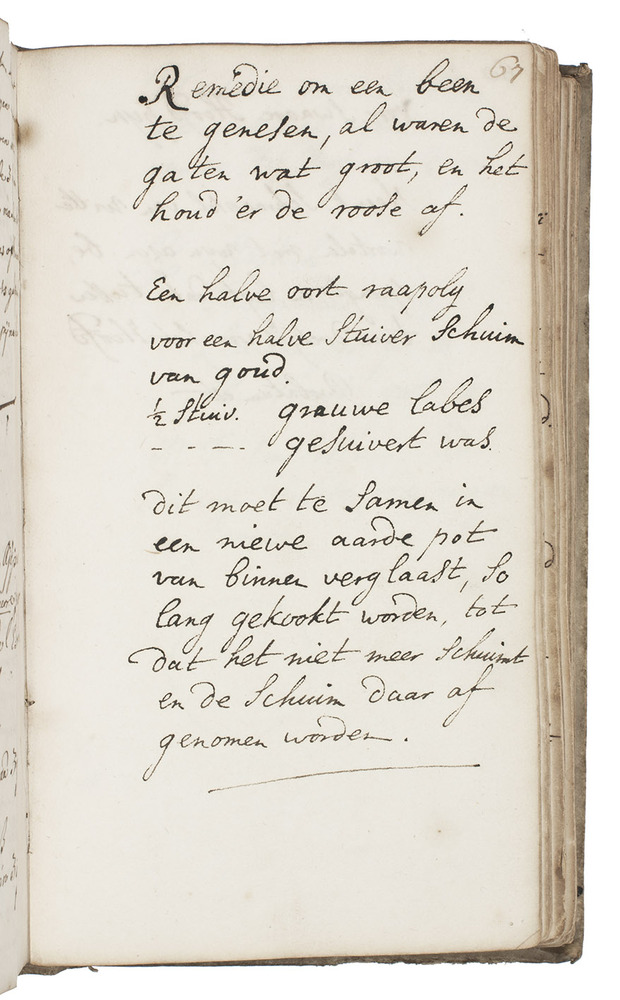 67
Remedie om een been
te genesen, al waren de
gaten wat groot, en het
houd 'er de roose af.
Een halve oort raapoly
voor een halve Stuiver Schuim
van goud.
½ Stuiv. grauwe labes
- - - - gesuivert was.
dit moet te samen in
een niewe aarde pot
van binnen verglaast, so
lang gekookt worden, tot
dat het niet meer Schuimt
en de Schuim daar af
genomen worden.